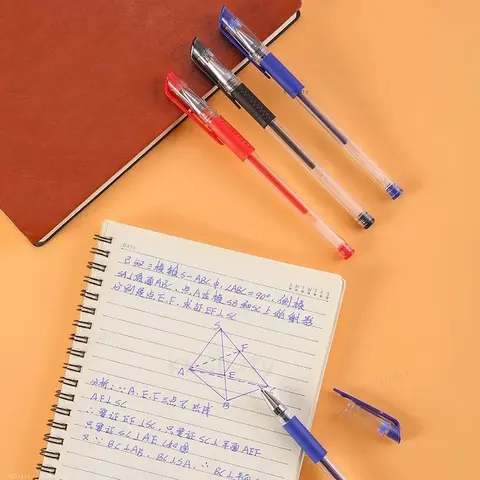 DATE
已知三棱锥S-ABC中,∠ABC=90°,侧棱
SA⊥底面ABC,点A在棱SB和SC上的射影
分别是点E、F,求证EF⊥SC
S
F
A
E
B
分析:∵A、E、F三点不共线
AF⊥SC
∴要证EF⊥SC,只需证SC⊥平面AEF
只需证SC⊥AE
又∵BC⊥AB,BC⊥SA,∴BC⊥平面